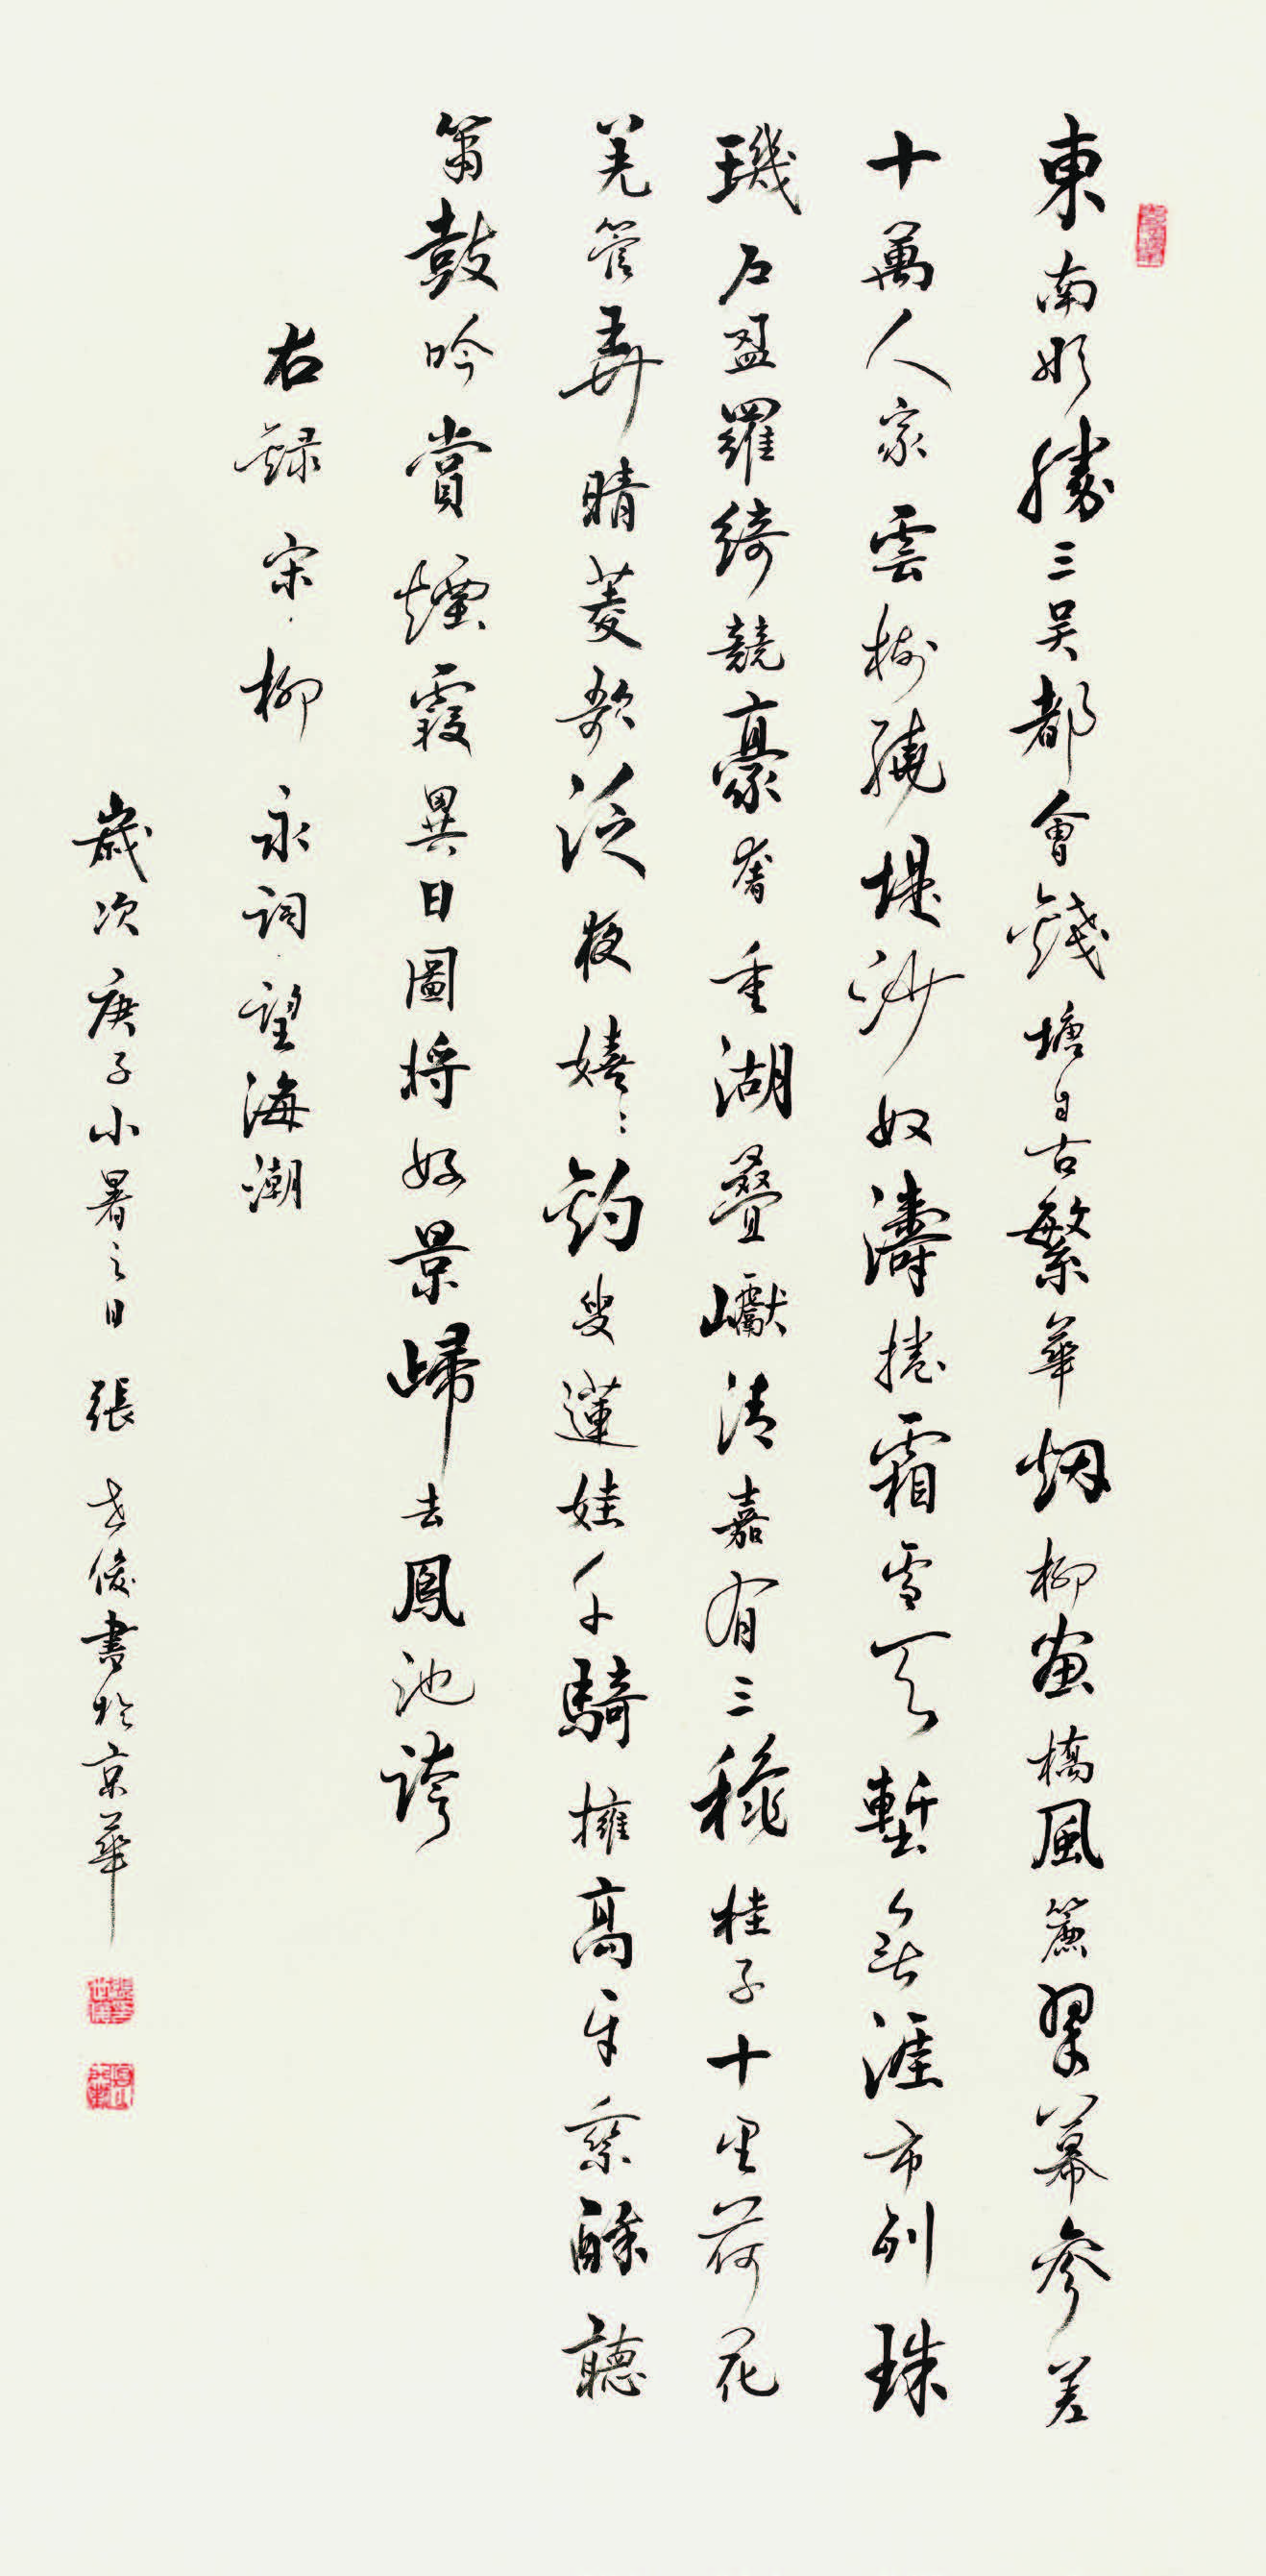 東南形勝三吴都會錢塘自古繁華烟柳畫橋風簾翠幕參差
十萬人家雲樹繞堤沙奴濤捲霜雪天塹無涯市列珠
璣户盈羅綺競豪奢重湖疊巘清嘉有三秋桂子十里荷花
羌管弄晴菱歌泛夜嬉〻釣叟蓮娃千騎擁高牙乘醉聽
簫鼓吟賞煙霞異日圖將好景歸去鳳池誇
右録宋柳永詞望海潮
歲次庚子小暑之日張世俊書於京華